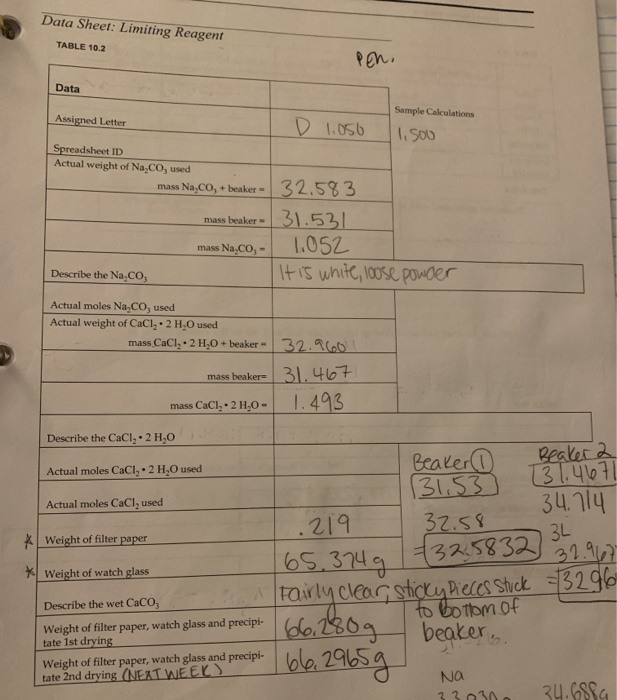 Data Sheet: Limiting Reagent
TABLE 10.2
pen.
Data
Sample Calculations
Assigned Letter D 1.056 1,500
Spreadsheet ID
Actual weight of Na₂CO₃ used
mass Na₂CO₃ + beaker = 32.583
mass beaker = 31.531
mass Na₂CO₃ = 1.052
Describe the Na₂CO₃ It is white, loose powder
Actual moles Na₂CO₃ used
Actual weight of CaCl₂ • 2 H₂O used
mass CaCl₂ • 2 H₂O + beaker = 32.960
mass beaker= 31.467
mass CaCl₂ • 2 H₂O = 1.493
Describe the CaCl₂ • 2 H₂O
Beaker ① Beaker 2
Actual moles CaCl₂ • 2 H₂O used 31.53 31.4671
Actual moles CaCl₂ used 34.714
* Weight of filter paper .219 32.58 3L
= 32.5832 32.967
* Weight of watch glass 65.374g
Describe the wet CaCO₃ Fairly clear, sticky pieces stuck to bottom of beaker. = 3296
Weight of filter paper, watch glass and precipi-
tate 1st drying 66.280g
Weight of filter paper, watch glass and precipi-
tate 2nd drying (NEXT WEEK) 66.2965g
Na
34.688g